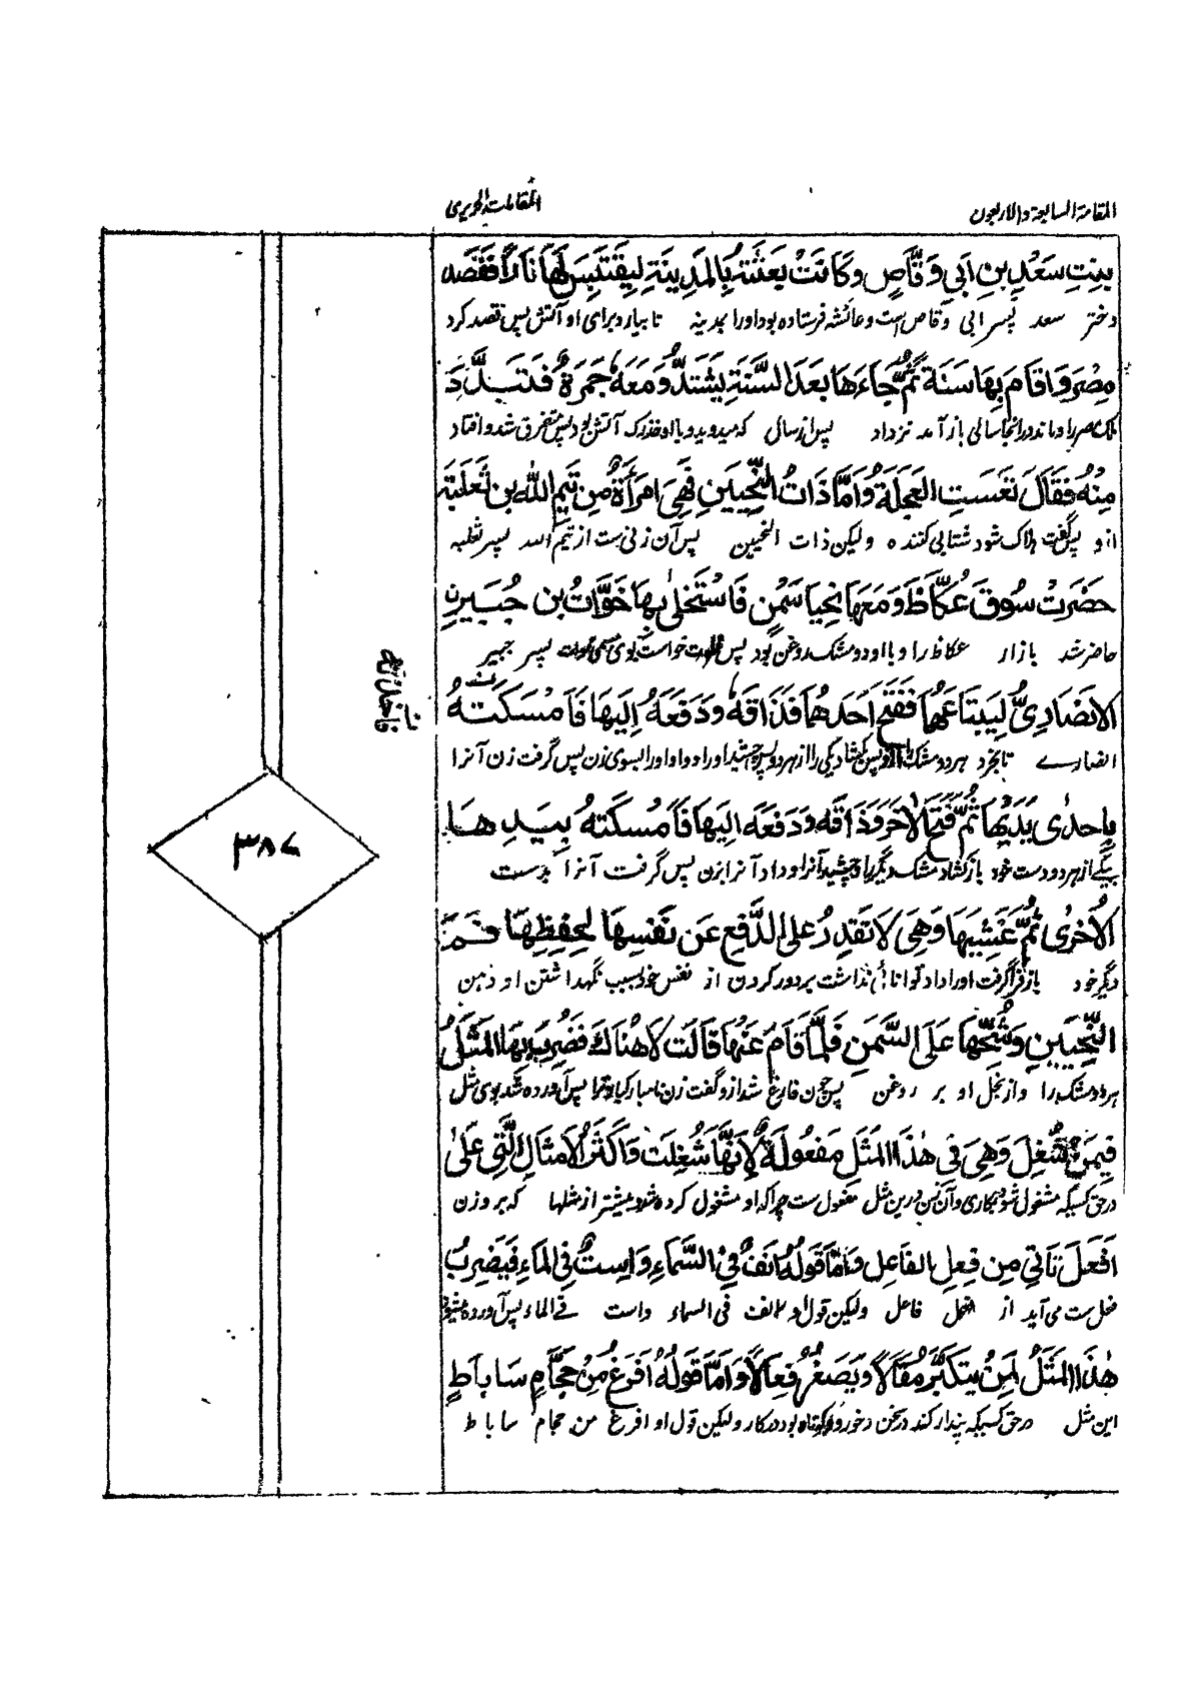 المقامة السابعة والاربعون
المقامات الحريرى
بِنتِ سَعْدِ بنِ اَبي وَقَّاصٍ وكَانَتْ بَعَثَتهُ بِالمَدِينَةِ لِيَقتَبِسَ لَهَا نَارًا فَقَصَد
دختر سعد پسر ابی وقاص است وعائشه فرستاده بود اورا بمدینه تا بیارد برای او آتش پس قصد کرد
مِصْرَ وَاقَامَ بِهَا سَنَة ثُمَّ جَاءَهَا بَعدَ السَّنَةِ يَشتَدُّ وَمَعَهُ جَمَرَةٌ فَتَبَدَّدَ
ملک مصر را وماند در انجا سالی باز آمد نزد او پس از سال که میدوید وبا او اخگرک آتش بود پس متفرق شد وافتاد
مِنْهُ فَقَالَ تَعَسَتِ العَجَلَةُ وَامَّا ذَاتُ النِّحيَينِ فَهِىَ امرَأَةٌ مِن تَيمِ اللهِ بن ثَعلَبَةَ
ازو پس گفت هلاک شود شتابی کننده ولیکن ذات النحیین پس آن زنی ست از تیم الله پسر ثعلبه
حَضَرَتْ سُوقَ عُكَّاظَ وَمَعَهَا نِحيَا سَمْنٍ فَاسْتَخلٰى بِهَا خَوَّاتُ بن جُبَيرِنِ
حاضر شد بازار عکاظ را وبا او دو مشک روغن بود پس خلوت خواست بوی خوات پسر جبیر
الاَنصَارِىُّ لِيَبتَاعَهُمَا فَفَتَحَ اَحَدَهُمَا فَذَاقَهُ وَدَفَعَهُ اِلَيهَا فَاَمْسَكَتهُ
انصارے تا بخرد هر دو مشک را ازو پس کشاد یکی را از هر دو پس چشید اورا وداد اورا بسوی زن پس گرفت زن آنرا
بِاِحدٰى يَدَيْهَا ثُمَّ فَتَحَ الاٰخَرَ وَذَاقَه وَدَفعَه اِلَيهَا فَاَمْسكَتهُ بِيَدِهَا
بیکے از هر دو دست خود باز کشاد مشک دیگر را وچشید آنرا وداد آنرا بزن پس گرفت آنرا بدست
الاُخرٰى ثُمَّ غَشِيَهَا وَهِىَ لَا تَقدِرُ عَلَى الدَّفعِ عَن نَفسِهَا لِحِفظِهَا فَمَ
دیگر خود باز فرا گرفت اورا واو توانائی نداشت بر دور کردن از نفس خود بسبب نگهداشتن او دهن
النِّحيَينِ وَشُحِّهَا عَلَى السَّمنِ فَلَمَّا قَامَ عَنْهَا قَالَت لَا هَنَاكَ فَضُرِبَ بِهَا المَثَلُ
هر دو مشک را واز بخل او بر روغن پس چون فارغ شد ازو گفت زن نا مبارک باد ترا پس آورده شد بوی مثل
فِيمَنْ شُغِلَ وَهِىَ فِى هٰذَا المَثَلِ مَفعُولَةٌ لِاَنَّهَا شُغِلَت وَاَكثَرُ الاَمثَالِ الَّتِى عَلىٰ
در حق کسیکه مشغول شود بکاری وآن زن درین مثل مفعول ست چراکه او مشغول کرده شد وبیشتر از مثلها که بر وزن
اَفعَلَ تَاتِى مِن فِعلِ الفَاعِلِ وَاَمَّا قَولُهُ اَنفٌ فِى السَّمَاءِ وَاِستٌ فِى المَاءِ فَيُضرَبُ
فعل ست می آید از فعل فاعل ولیکن قول او انف فی السماء واست فے الماء پس آورده میشود
هٰذَا المَثَلُ لِمَنْ يتَكَبَّرُ مَقَالًا وَيَصغُرُ فِعَالًا وَاَمَّا قَولُهُ اَفرَغُ مِنْ حَجَّامِ سَابَاطٍ
این مثل در حق کسیکه پندار کند در سخن وخورد وکوتاه بود در کار ولیکن قول او افرغ من حجام ساباط
٣٨٧